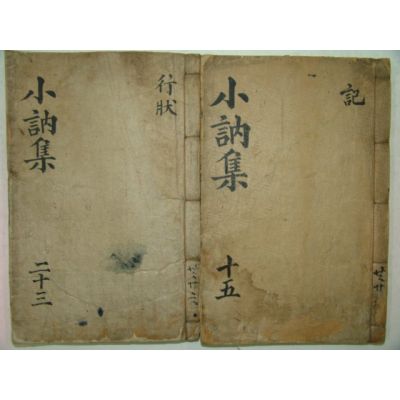 記
小訥集
十五
行狀
小訥集
二十三